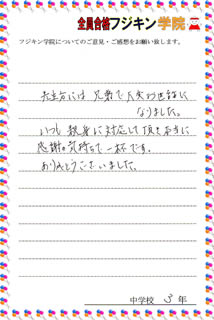 全員合格フジキン学院
フジキン学院についてのご意見・ご感想をお願い致します。
先生方には兄弟で大変お世話に
なりました。
いつも親身に対応して頂き本当に
感謝の気持ちで一杯です。
ありがとうございました。
中学校 3 年